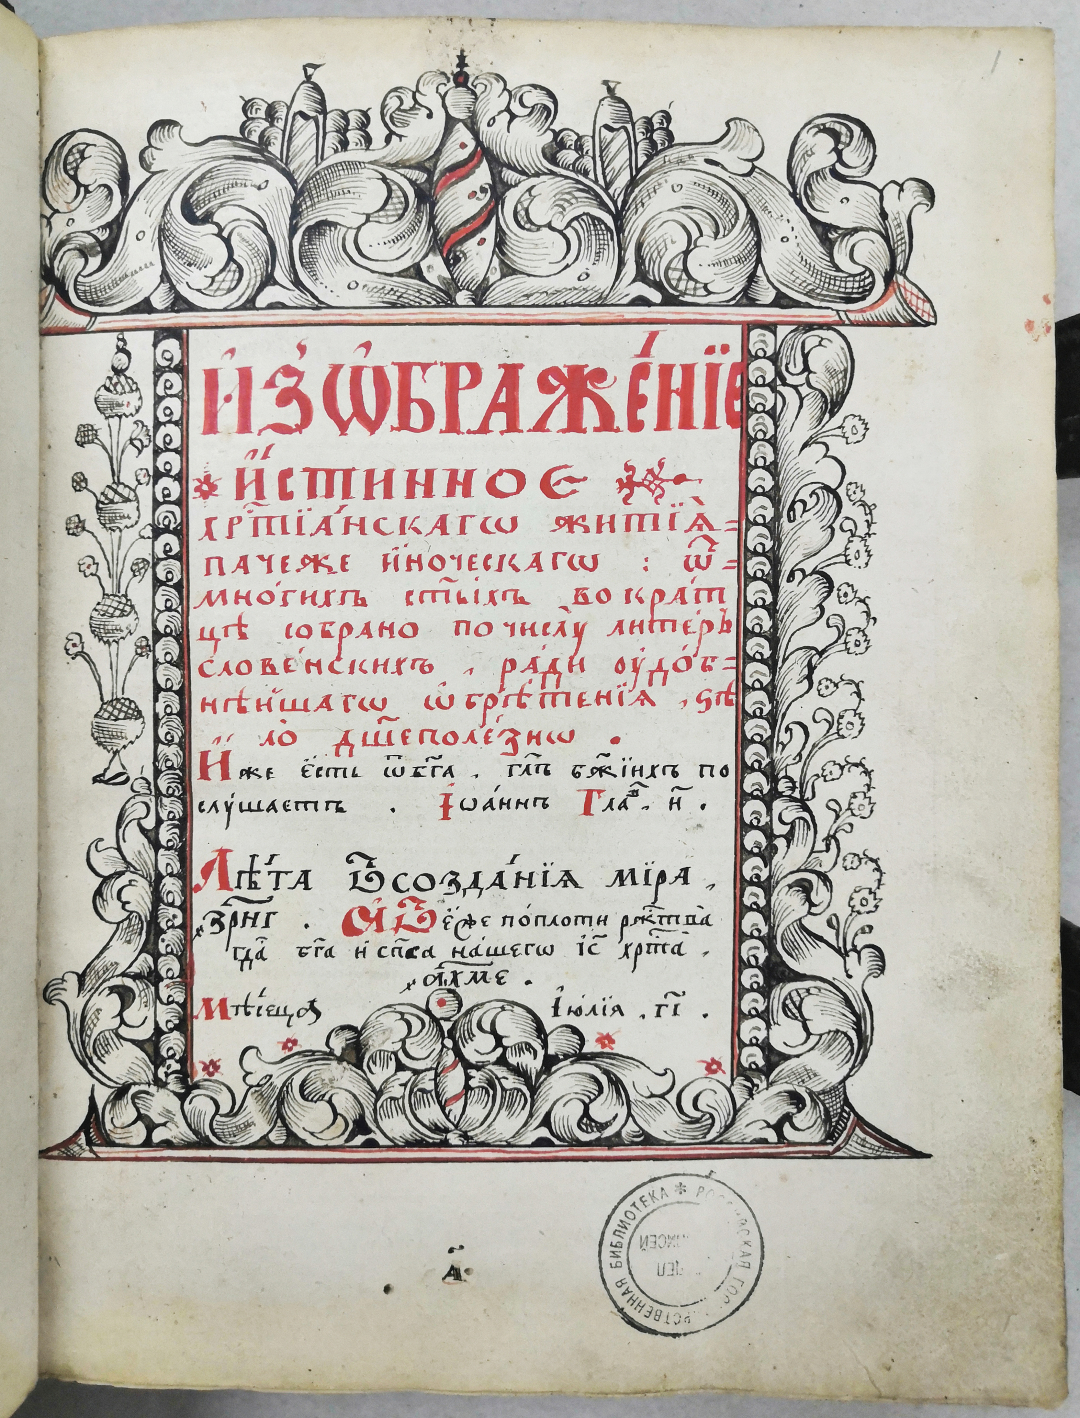 1
И҆З̾Ѡ҆БРАЖЕ́НЇЕ
И҆́СТИННОЄ
хрⷭ҇тїа́нскагѡ житїѧ̀=
паче же и҆ноческагѡ : ѿ=
мно́гихъ ст҃ы́хъ вократ
цѣ собрано по числꙋ̀ литеръ
слове́нскихъ , ра́ди ᲂу҆до́б=
нѣйшагѡ ѡ҆брѣ́тенїѧ , ѕѣ
ло̀ дш҃еполе́знѡ .
И҆́же є҆́сть ѿ бг҃а . гл҃ъ бж҃їихъ по
слꙋ́шаетъ . І҆ѡа́ннъ Глав҃ . и҃ .
Лѣ́та Ѿ созда́нїѧ мі́ра ,
҂зрн҃г . Ѿ є҆́же по пло́ти ржⷭ҇тва̀
гдⷭ҇а бг҃а и҆ сп҃са на́шегѡ і҆с҃ хрⷭ҇та̀ .
҂а҃хме .
Мѣ́сѧцѧ І҆ю́лїѧ . гі҃ .
а҃
РОССИЙСКАЯ ГОСУДАРСТВЕННАЯ БИБЛИОТЕКА